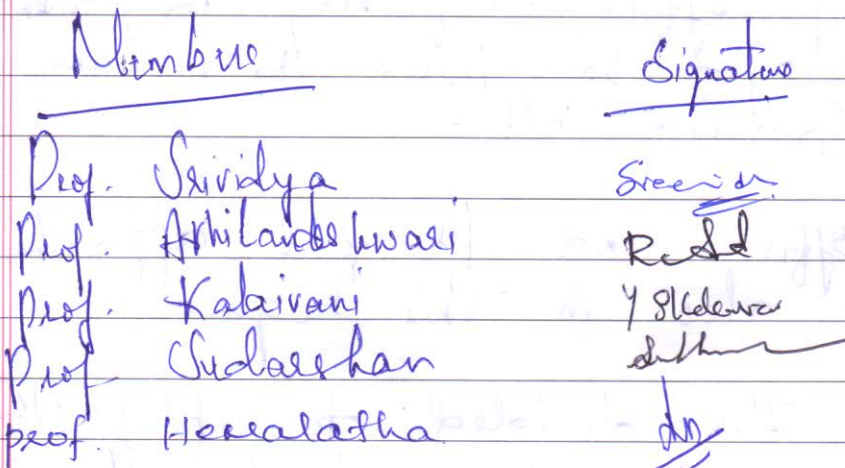 Members Signature
Prof. Srividya
Prof. Akhilandeshwari
Prof. Kalaivani
Prof. Sudarshan
prof. Hemalatha